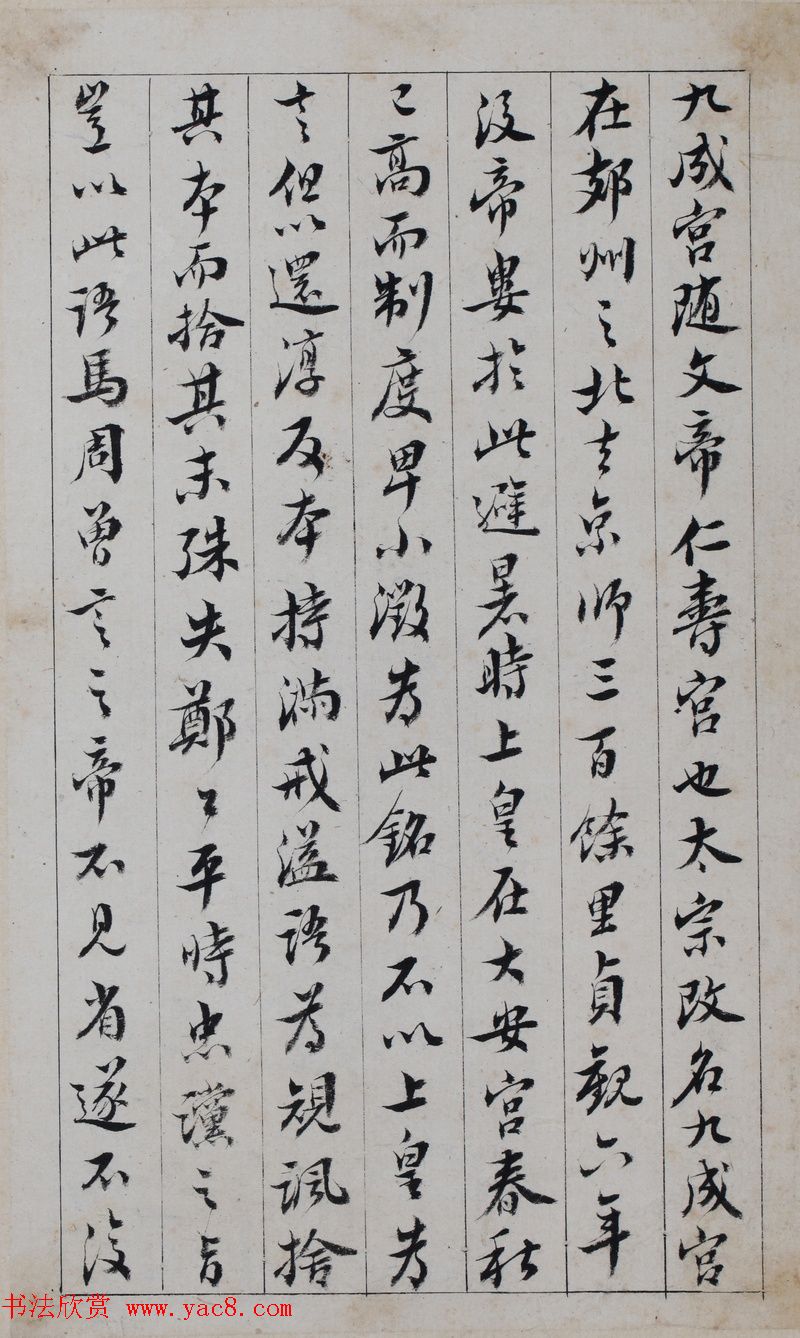 九成宮随文帝仁壽宮也太宗改名九成宮
在郏州之北去京师三百餘里貞觀六年
没帝屢於此避暑時上皇在大安宮春秋
已高而制度卑小澂为此銘乃不以上皇为
言但以還淳反本持滿戒溢語为規諷捨
其本而拾其末殊失鄭公平時忠讜之旨
豈以此語馬周曾言之帝不見省遂不復
书法欣赏 www.yac8.com